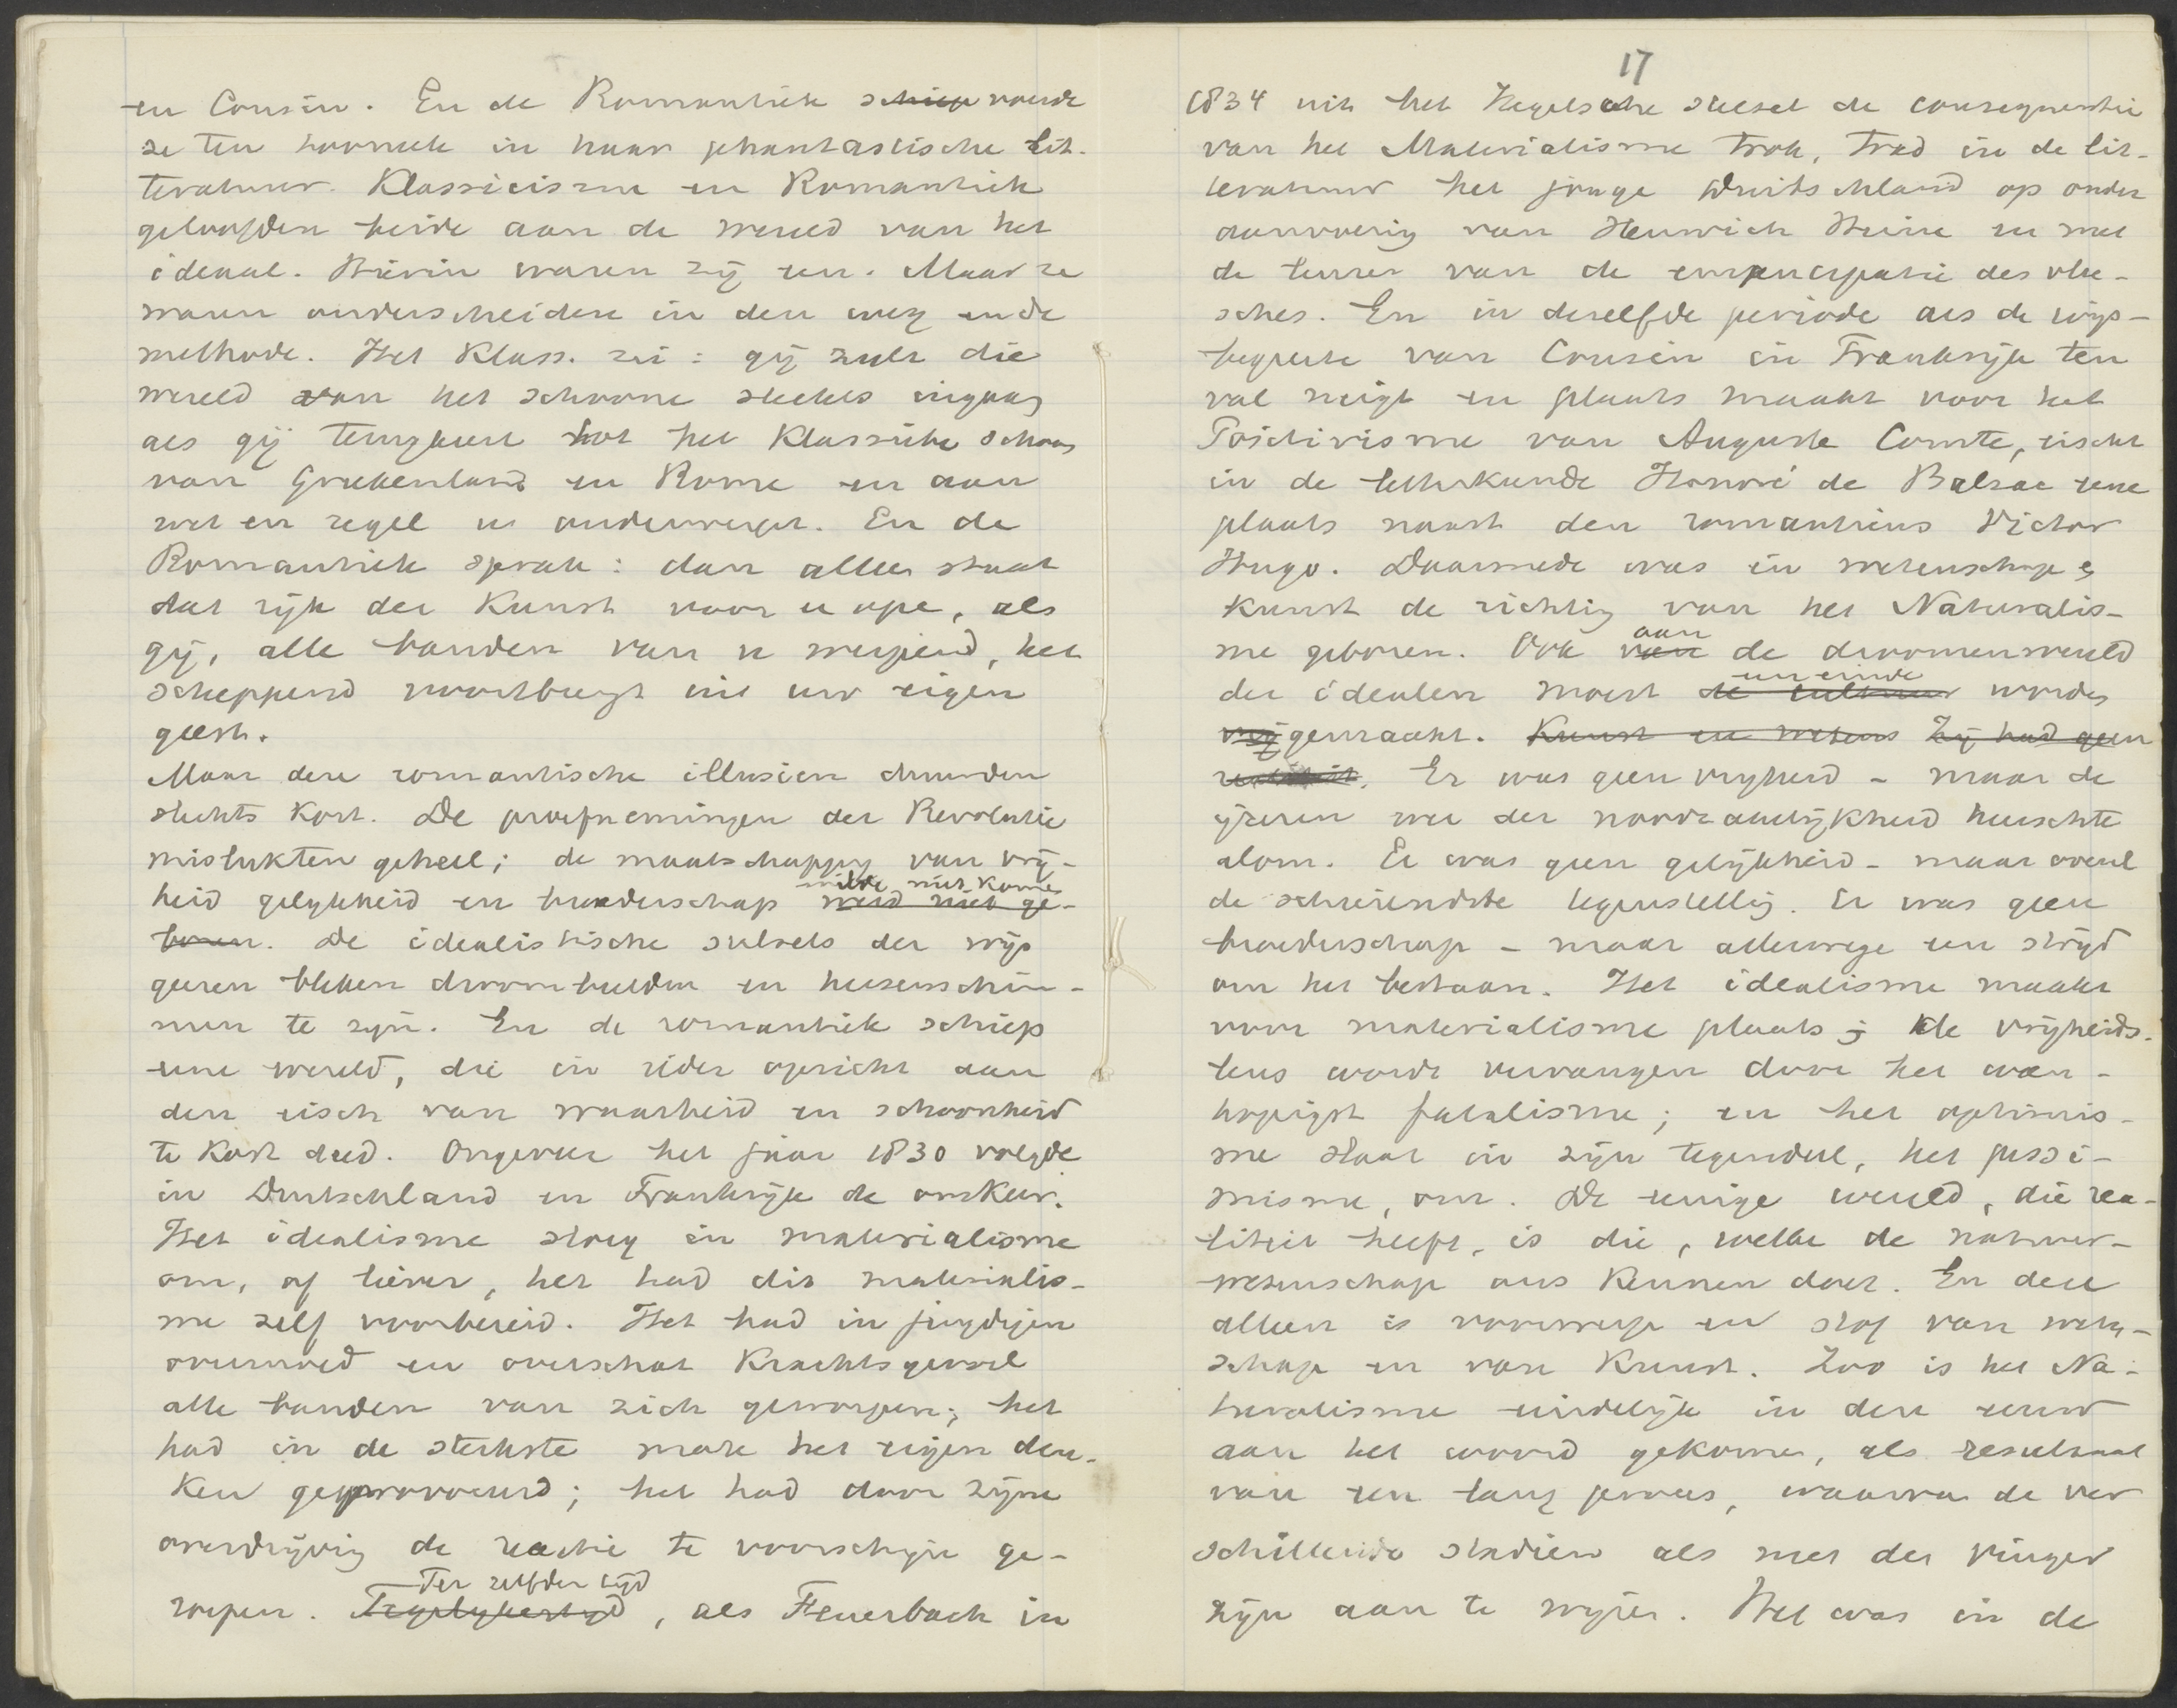 en Cousin. En de Romantiek schiep voerde
ze ten tooneele in haar phantastische lit-
teratuur. Klassicisme en Romantiek
geloofden beide aan de wereld van het
ideaal. Hierin waren zij een. Maar ze
waren onderscheiden in den weg en de
methode. Het Klass. zei: gij zult die
wereld van het schoone slechts ingaan
als gij terugkeert tot het Klassieke schoon
van Griekenland en Rome en aan
wet en regel u onderwerpt. En de
Romantiek sprak: dan alleen staat
dat rijk der Kunst voor u open, als
gij, alle banden van u werpend, het
scheppend voortbrengt uit uw eigen
geest.
Maar deze romantische illusien duurden
slechts kort. De proefnemingen der Revolutie
mislukten geheel; de maatschappy van vrij-
wilde niet komen
heid gelykheid en broederschap werd niet ge-
boren. De idealistische stelsels der wijs
geeren bleken droombeelden en hersenschim-
men te zyn. En de romantiek schiep
eene wereld, die in ieder opzicht aan
den eisch van waarheid en schoonheid
te kort deed. Ongeveer het jaar 1830 volgde
in Duitschland en Frankrijk de omkeer.
Het idealisme sloeg in materialisme
om, of liever, het had dit materialis-
me zelf voorbereid. Het had in jeugdigen
overmoed en overschat Krachtsgevoel
alle banden van zich geworpen; het
had in de sterkste mate het eigen den-
ken geprovoceerd; het had door zijne
overdrijving de reactie te voorschijn ge-
Ter zelfder tijd
roepen. Tegelykertyd, als Feuerbach in
17
1834 uit het Hegelsche stelsel de consequentie
van het Materialisme trok, trad in de lit-
teratuur het jonge Duitschland op onder
aanvoering van Heinrich Heine en met
de leuze van de emancipatie des vlee-
sches. En in dezelfde periode als de wijs-
begeerte van Cousin in Frankrijk ten
val neigt en plaats maakt voor het
Positivisme van Auguste Comte, eischt
in de letterkunde Honoré de Balzac eene
plaats naast den romanticus Victor
Hugo. Daarmede was in wetenschap en
kunst de richting van het Naturalis-
aan
me geboren. Ook van de droomenwereld
een einde
der idealen moest de cultuur worden
vrij gemaakt. Kunst en wetens Zij had geen
realiteit. Er was geen vryheid - maar de
ijzeren wet der noodzakelijkheid heerschte
alom. Er was geen gelijkheid - maar overal
de schreiendste tegenstelling. Er was geen
broederschap - maar allerwege een strijd
om het bestaan. Het idealisme maakt
voor materialisme plaats; de vrijheids-
leus wordt vervangen door het wan-
hopigst fatalisme; en het optimis-
me slaat in zijn tegendeel, het pessi-
misme, om. De eenige wereld, die rea-
liteit heeft, is die, welke de natuur-
wetenschap ons kennen doet. En deze
alleen is voorwerp en stof van weten-
schap en van Kunst. Zoo is het Na-
turalisme eindelijk in deze eeuw
aan het woord gekomen, als resultaat
van een lang proces, waarvan de ver
schillende stadien als met den vinger
zijn aan te wijzen. Het was in de